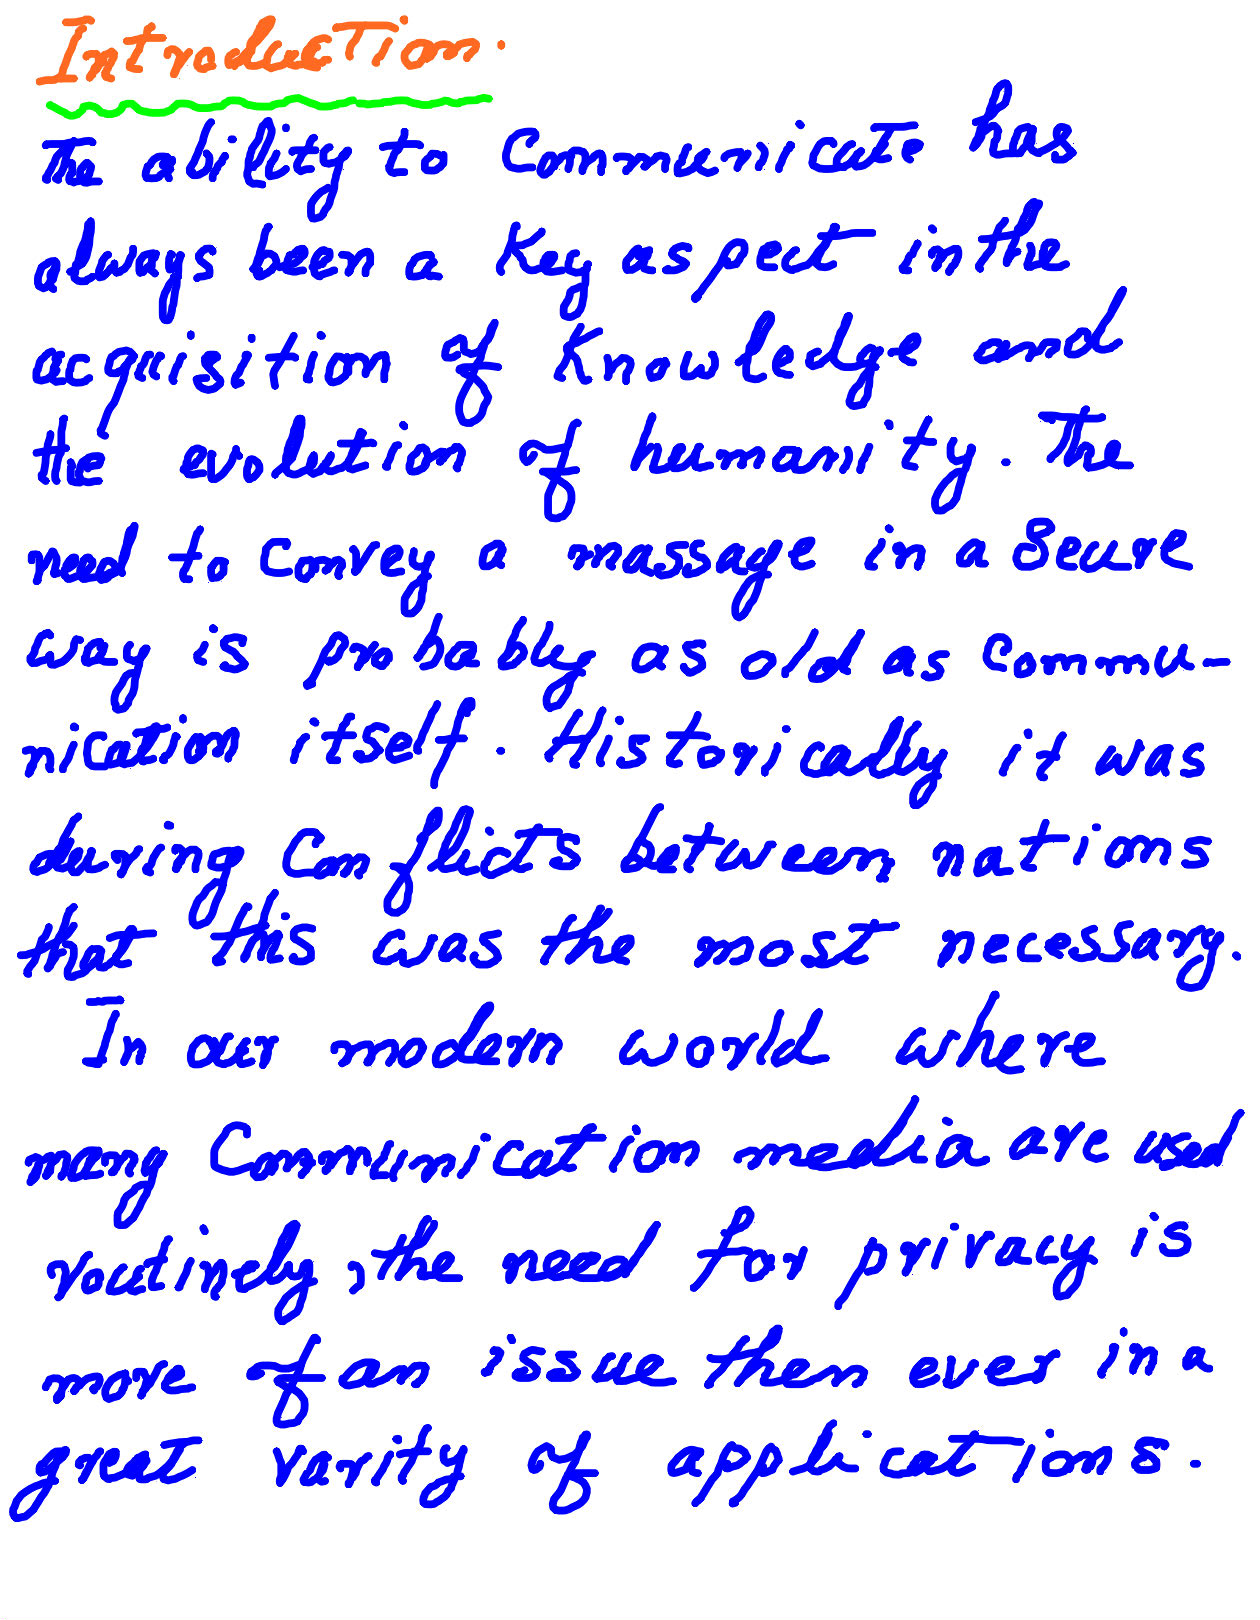 Introduction.
The ability to Communicate has
always been a Key aspect in the
acquisition of Knowledge and
the evolution of humanity. The
need to Convey a massage in a Secure
way is probably as old as Commu-
nication itself. Historically it was
during Conflicts between nations
that this was the most necessary.
In our modern world where
many Communication media are used
routinely, the need for privacy is
more of an issue then ever in a
great varity of applications.